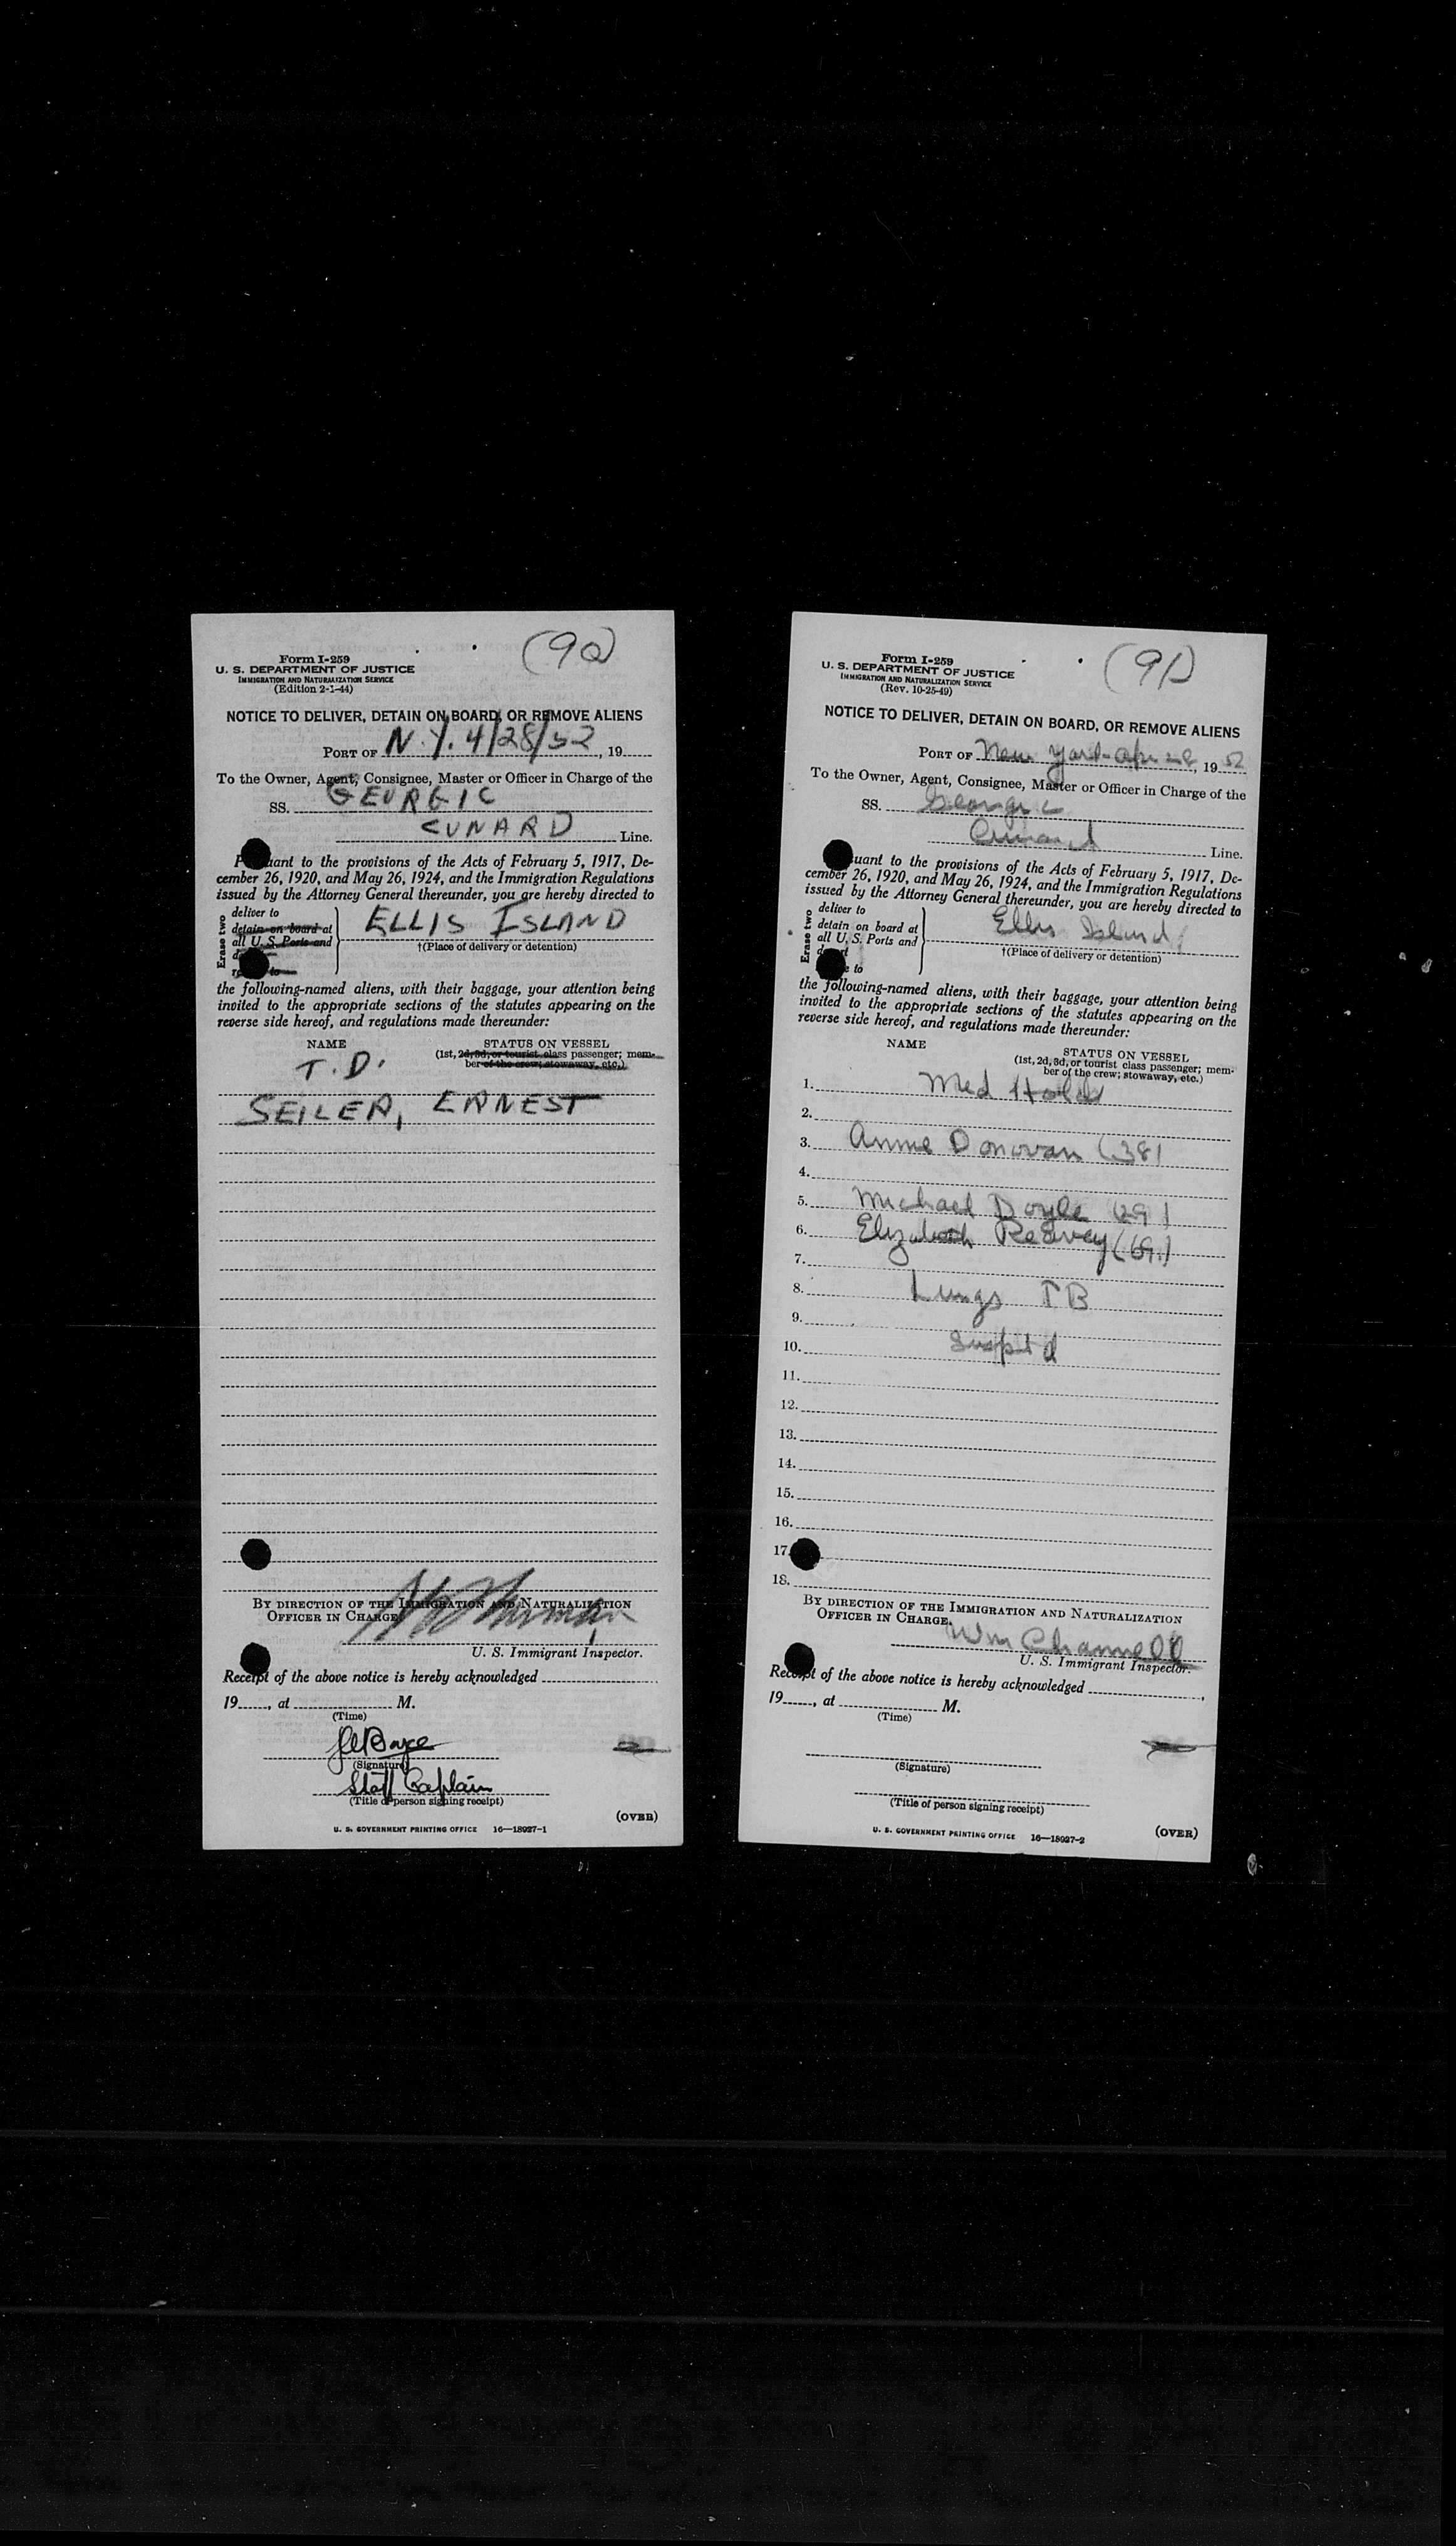 (90)
Form I-259
U. S. DEPARTMENT OF JUSTICE
IMMIGRATION AND NATURALIZATION SERVICE
(Edition 2-1-44)
NOTICE TO DELIVER, DETAIN ON BOARD, OR REMOVE ALIENS
PORT OF N.Y. 4/28/52, 19
To the Owner, Agent, Consignee, Master or Officer in Charge of the
SS. GEORGIC
CUNARD Line.
Pursuant to the provisions of the Acts of February 5, 1917, De-
cember 26, 1920, and May 26, 1924, and the Immigration Regulations
issued by the Attorney General thereunder, you are hereby directed to
Erase two
deliver to
detain on board at
all U. S. Ports and
ELLIS ISLAND
†(Place of delivery or detention)
the following-named aliens, with their baggage, your attention being
invited to the appropriate sections of the statutes appearing on the
reverse side hereof, and regulations made thereunder:
NAME
STATUS ON VESSEL
(1st, 2d, 3d, or tourist class passenger; mem-
ber of the crew; stowaway, etc.)
T. D.
SEILER, ERNEST
BY DIRECTION OF THE IMMIGRATION AND NATURALIZATION
OFFICER IN CHARGE.
U. S. Immigrant Inspector.
Receipt of the above notice is hereby acknowledged
19, at M.
(Time)
(Signature)
Staff Captain
(Title of person signing receipt)
(OVER)
U. S. GOVERNMENT PRINTING OFFICE 16—18927-1
(91)
Form I-259
U. S. DEPARTMENT OF JUSTICE
IMMIGRATION AND NATURALIZATION SERVICE
(Rev. 10-25-49)
NOTICE TO DELIVER, DETAIN ON BOARD, OR REMOVE ALIENS
PORT OF New York - Apr 28, 1952
To the Owner, Agent, Consignee, Master or Officer in Charge of the
SS. Georgic
Cunard Line.
Pursuant to the provisions of the Acts of February 5, 1917, De-
cember 26, 1920, and May 26, 1924, and the Immigration Regulations
issued by the Attorney General thereunder, you are hereby directed to
Erase two
deliver to
detain on board at
all U. S. Ports and
to
Ellis Island
†(Place of delivery or detention)
the following-named aliens, with their baggage, your attention being
invited to the appropriate sections of the statutes appearing on the
reverse side hereof, and regulations made thereunder:
NAME
STATUS ON VESSEL
(1st, 2d, 3d, or tourist class passenger; mem-
ber of the crew; stowaway, etc.)
1. Med Holds
2.
3. Annie Donovan (38)
4.
5. Michael Doyle (29)
6. Elizabeth Reavey (69)
7.
8. Lungs TB
9.
10.
11.
12.
13.
14.
15.
16.
17.
18.
BY DIRECTION OF THE IMMIGRATION AND NATURALIZATION
OFFICER IN CHARGE.
Wm Channell
U. S. Immigrant Inspector.
Receipt of the above notice is hereby acknowledged
19, at M.
(Time)
(Signature)
(Title of person signing receipt)
(OVER)
U. S. GOVERNMENT PRINTING OFFICE 16—18927-2